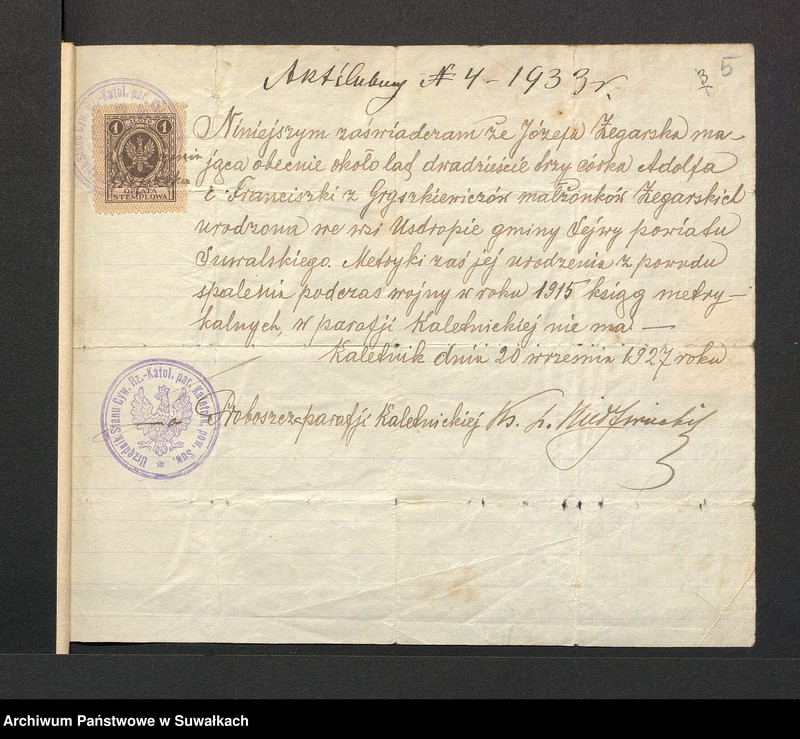 Akt ślubny № 4 - 1933 r.
3
5
1 ZŁOTY 1
OPŁATA
STEMPLOWA
Niniejszym zaświadczam że Józefa Żegarska ma-
jąca obecnie około lat dwadzieście trzy córka Adolfa
i Franciszki z Gryszkiewiczów małżonków Żegarskich
urodzona we wsi Usdropie gminy Sejwy powiatu
Suwalskiego. Metryki zaś jej urodzenia z powodu
spalenia podczas wojny w roku 1915 ksiąg metry-
kalnych, w parafji Kaletnickiej nie ma. —
Kaletnik dnia 20 września 1927 roku
Proboszcz parafji Kaletnickiej Ks.
Urzędnik Stanu Cyw. Rz.-Katol. par. Kaletnik, pow. Suw.
Archiwum Państwowe w Suwałkach